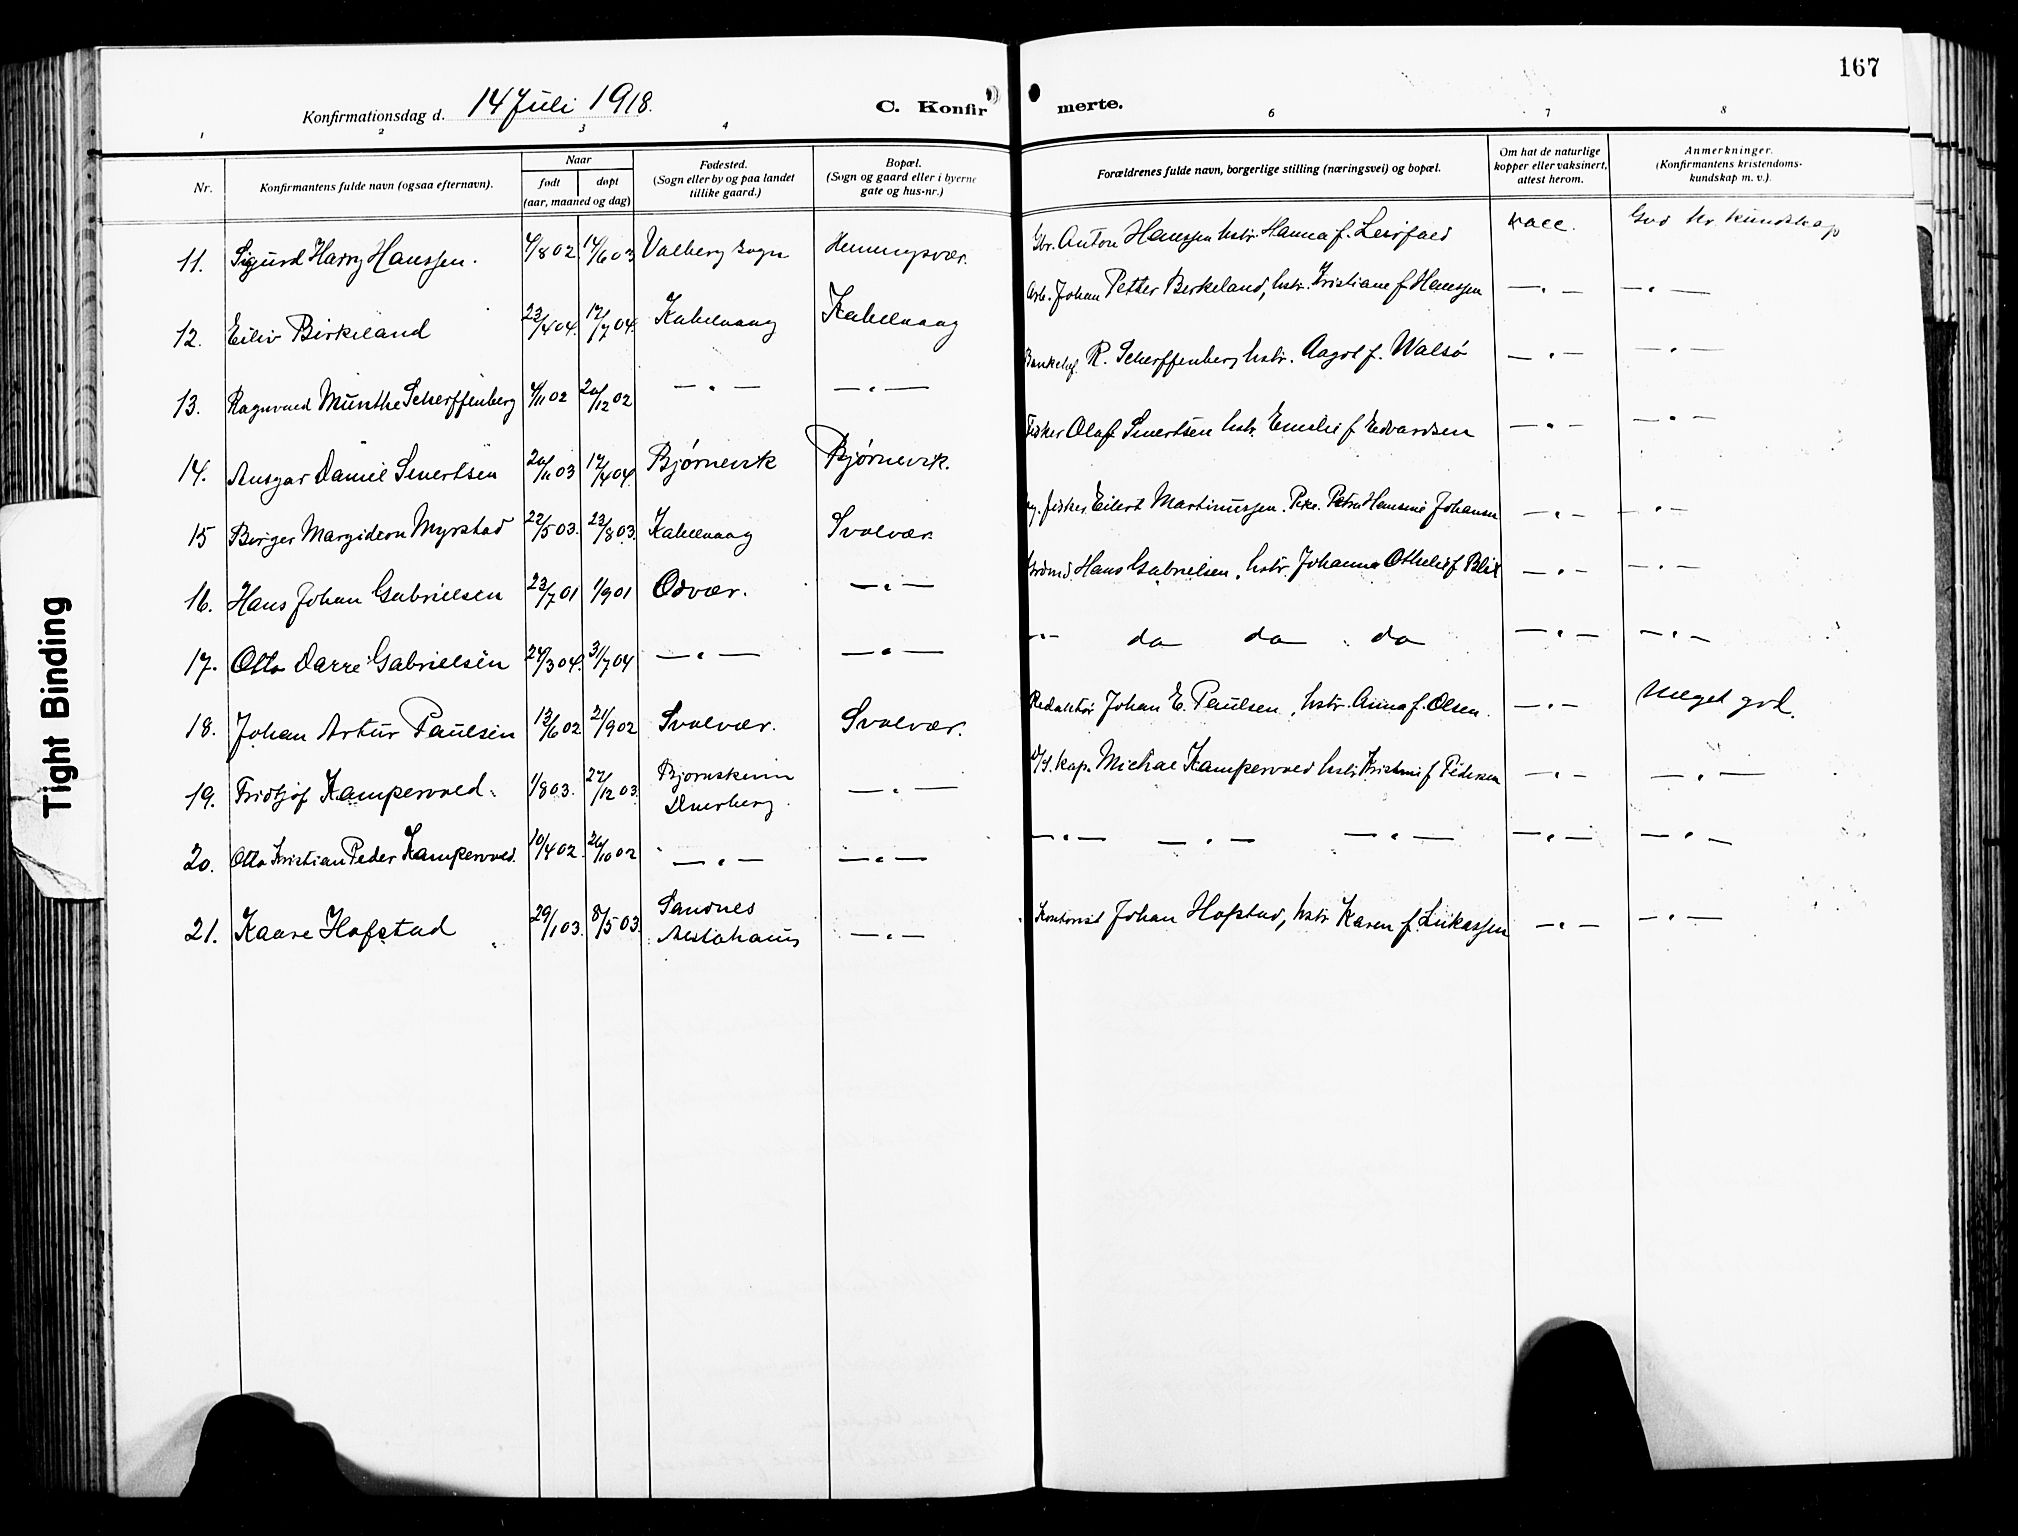 167
Konfirmationsdag d. 14 Juli 1918.
C. Konfirmerte.
1 2 3 4 6 7 8
Nr. Konfirmantens fulde navn (ogsaa efternavn). Naar født døpt (aar, maaned og dag) Fødested. (Sogn eller by og paa landet tillike gaard.) Bopæl. (Sogn og gaard eller i byerne gate og hus-nr.) Forældrenes fulde navn, borgerlige stilling (næringsvei) og bopæl. Om hat de naturlige kopper eller vaksinert, attest herom. Anmerkninger. (Konfirmantens kristendoms-kundskap m. v.).
11. Sigurd Harry Hanssen. 4/8 02 14/6 03 Valberg sogn Henningsvær. Anton Hanssen hstr. Hanna f. Leirfald vacc. God kr. kundskap
12. Eiliv Birkeland 23/4 04. 17/7 04. Kabelvaag Kabelvaag Arb. Johan Petter Berkeland, hstr. Kristiane f. Hanssen — " — — " —
13. Ragnvald Munthe Scherffenberg 4/11 02 20/12 02 — " — — " — R. Scherffenberg hstr. Aagot f. Walsø — " — — " —
14. Ansgar Daniel Sivertsen 20/11 03 17/4 04. Bjørnevik Bjørnevik. Fisker Olaf Sivertsen hstr. Emelie f. Edvardsen — " — — " —
15 Birger Margideon Myrstad 22/5 03. 23/8 03. Kabelvaag Svolvær. fisker Eilert Martinussen. Pike. Petra Hansine Johansen — " — — " —
16. Hans Johan Gabrielsen 23/7 01 1/9 01 Odvær. — " — Hans Gabrielsen, hstr. Johanna Othelie f. Blix — " — — " —
17. Otto Darre Gabrielsen 24/3 04. 31/7 04 — " — — " — — " — do do do — " — — " —
18. Johan Artur Paulsen 13/6 02 21/9 02 Svolvær. Svolvær. Redaktør Johan E. Paulsen, hstr. Anna f. Olsen. — " — Meget god.
19. Fridtjof Kampevold. 1/8 03. 27/12 03. Bjørnskinn — " — D/S. kap. Michael Kampevold hstr. Kristine f. Pedersen — " — — " —
20. Otto Kristian Peder Kampevold. 10/4 02. 26/10 02 — " — — " — — " — — " — — " — — " — — " —
21. Kaare Hofstad 29/1 03. 8/5 03. Sandnes Alstahaug — " — Kontorist Johan Hofstad, hstr. Karen f. Lukassen — " — — " —
Tight Binding